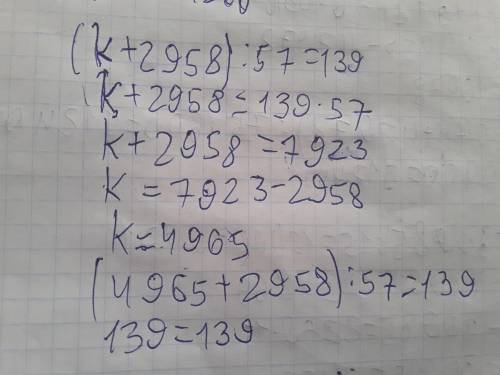 (k+2958):57=139
k+2958=139·57
k+2958=7923
k=7923-2958
k=4965
(4965+2958):57=139
139=139